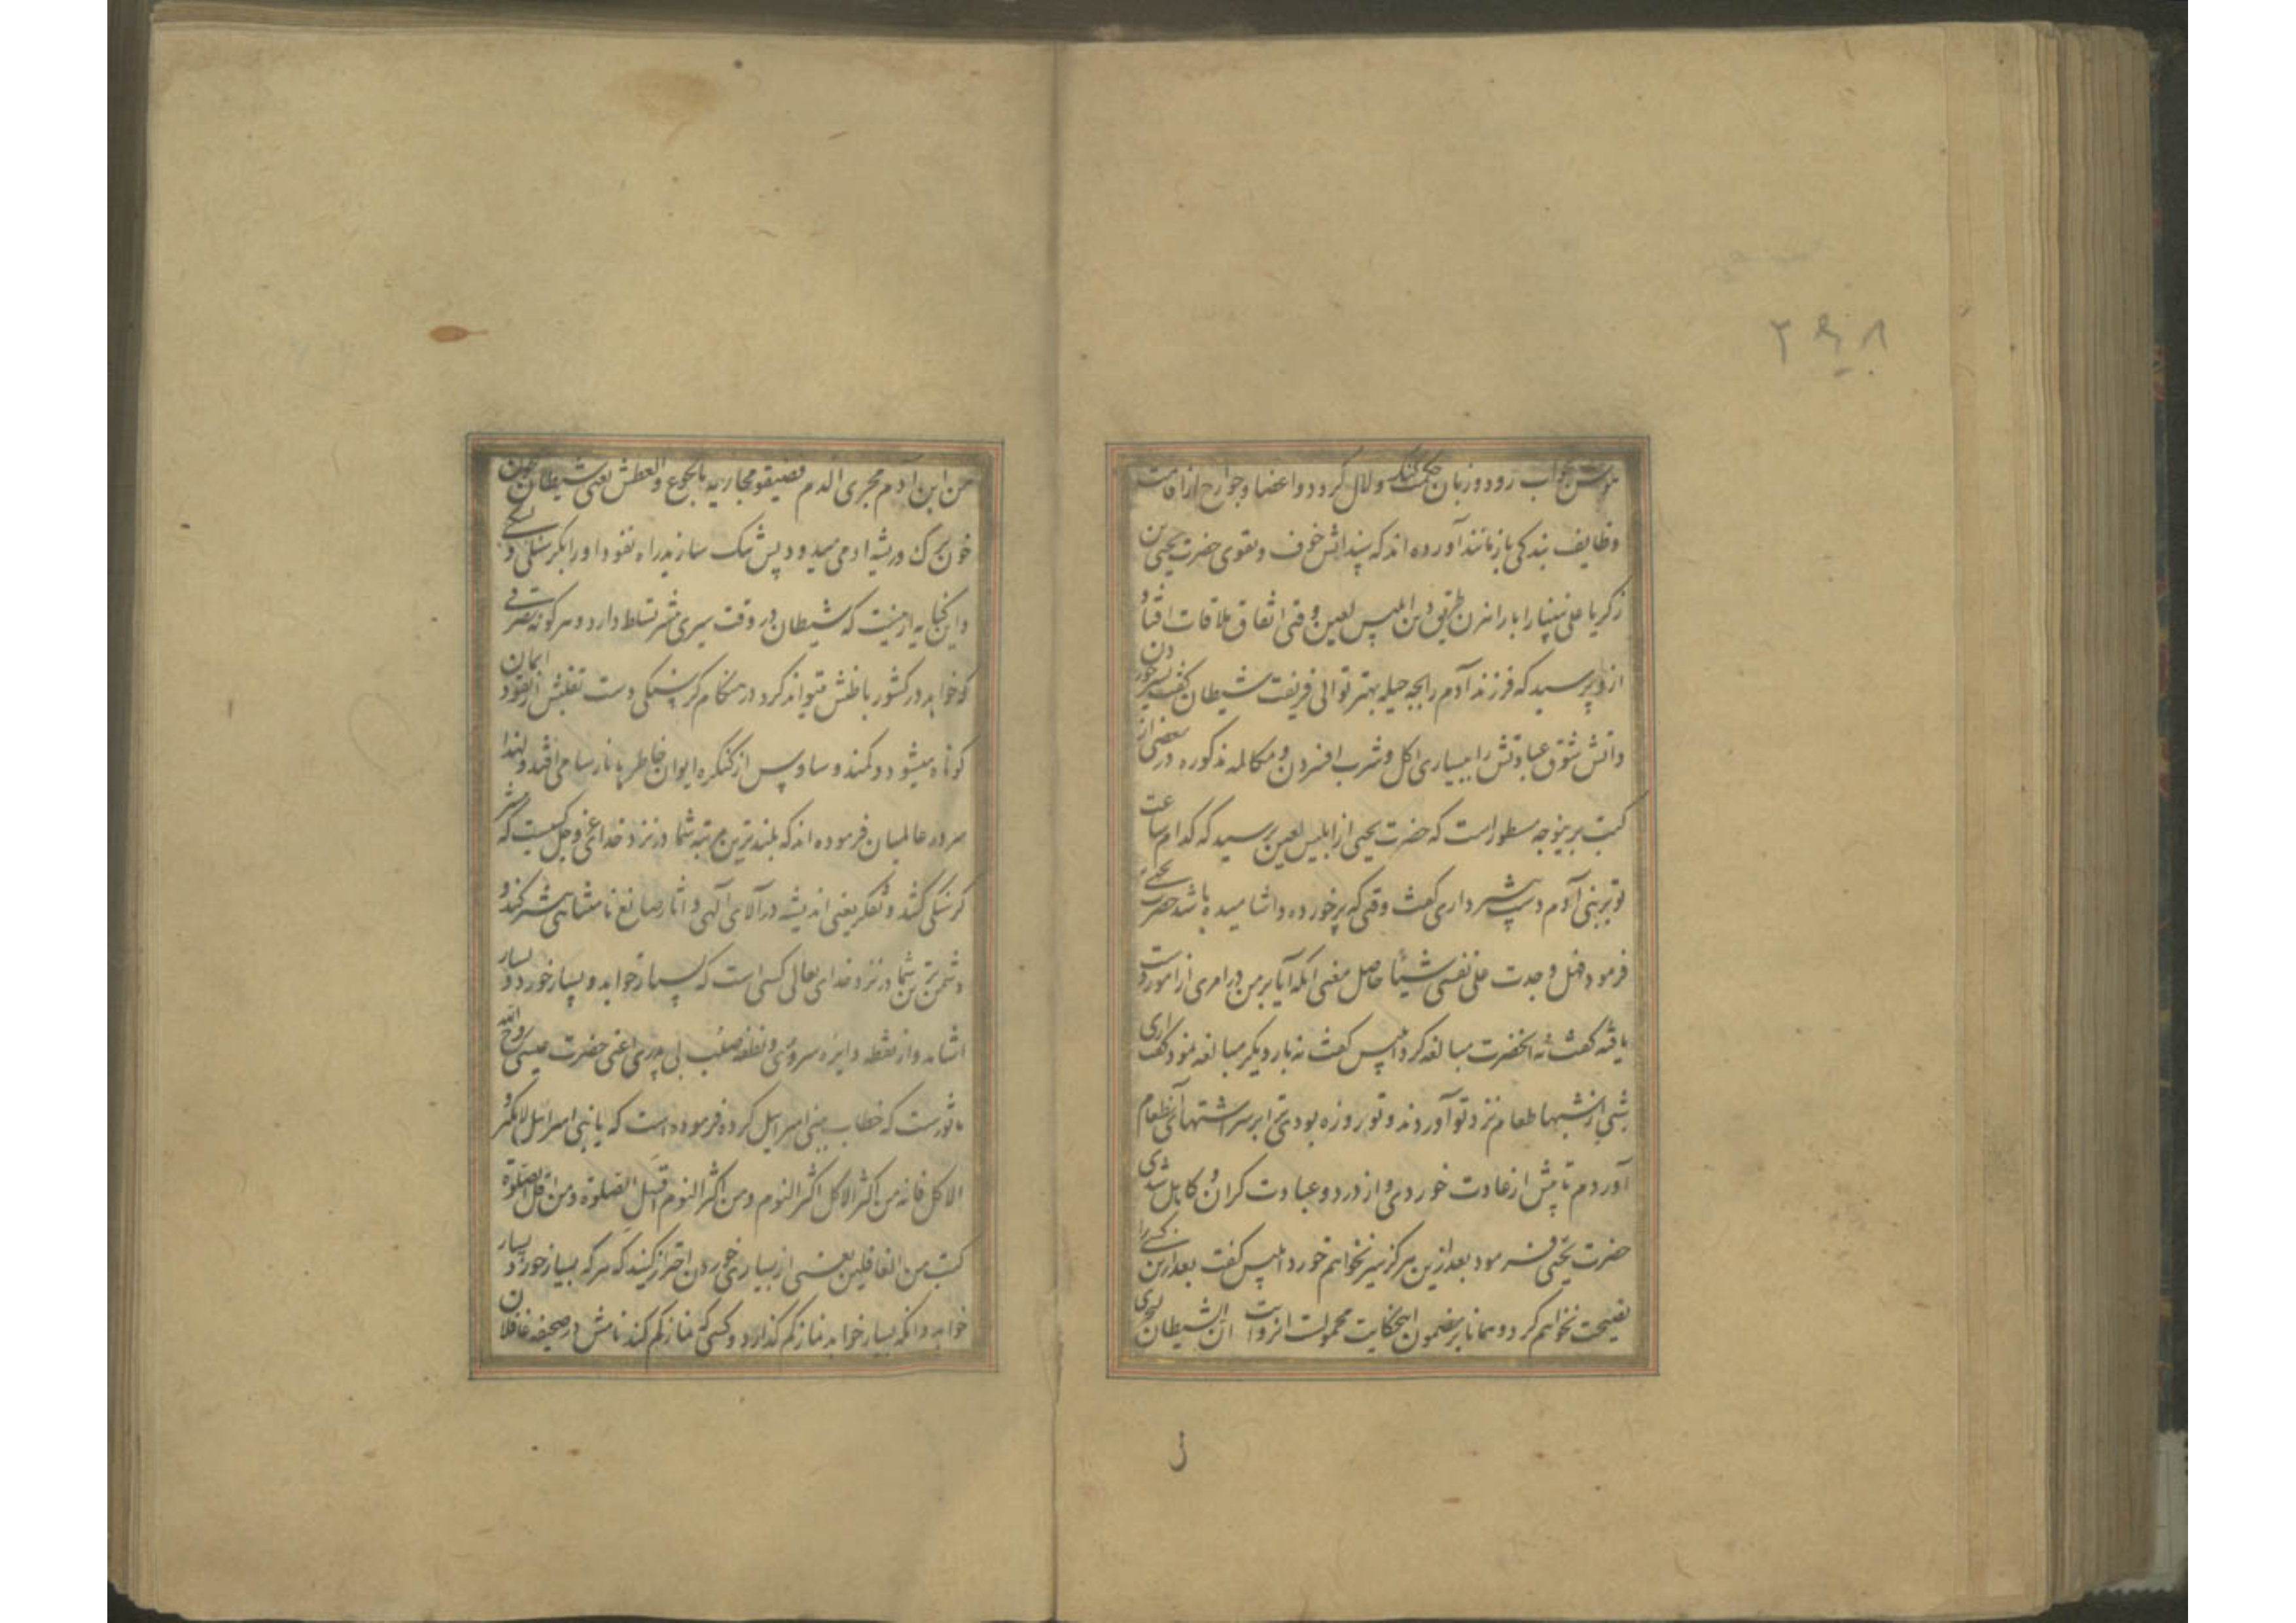 ۲۹۸
هوش بخواب رود و زبان حکمت گنگ و لال گردد و اعضا و جوارح از اقامت
وظایف بندکی باز مانند آورده اند که پیشوای خوف و تقوی حضرت یحیی بن
زکریا علی نبینا را با راهزن طریق دین ابلیس لعین وقتی اتفاق ملاقات افتاد و
ازو پرسید که فرزند آدم را بچه حیله بهتر توانی فریفت شیطان گفت بسیر خوردن
واتش شوق عبادتش را ببسیاری اکل و شرب افسردن و مکالمه مذکوره در بعضی از
کتب برینوجه مسطور است که حضرت یحیی از ابلیس لعین پرسید که کدام ساعت
تو بر بنی آدم دست بیشتر داری گفت وقتی که پر خورده و اشامیده باشد حضرت یحیی
فرمود فهل وجدت علی نفسی شیئا حاصل معنی آنکه آیا بر من در امری از امور دست
یافته گفت نه آنحضرت مبالغه کرد ابلیس گفت نه بار دیگر مبالغه نمود گفت آری
شبی از شبها طعام نزد تو آوردند و تو روزه بودی ترا بر سر اشتهای آنطعام
آوردم تا پیش از عادت خوردی و از درد و عبادت کران و کاهل شدی
حضرت یحیی فرمود بعد ازین هرگز سیر نخواهم خورد ابلیس گفت بعد ازین کسی را
نصیحت نخواهم کرد و همانا بر مضمون اینحکایت محمولست انروایت ان الشیطان لیجری
من ابن آدم مجری الدم فضیقوا مجاریه بالجوع والعطش یعنی شیطان چون
خون برگ و ریشه ادمی میدود پس تنک سازید راه نفوذ او را بکرسنکی و تشنکی
و این کنایه از اینست که شیطان در وقت سیری بیشتر تسلط دارد و هر گونه تصرفی
که خواهد در کشور باطنش میتواند کرد در هنکام کرسنکی دست تغلبش از نقود ایمان
کوتاه میشود و کمند وساوس از کنکره ایوان خاطرها نارسا می افتد و لهذا
سرور عالمیان فرموده اند که بلندترین مرتبه شما در نزد خدای عز و جل کسیست که بیشتر
کرسنکی کشد و تفکر یعنی اندیشه در آلای آلهی و اثار صانع نامتناهی بیشتر کند و
دشمن ترین شما در نزد خدای تعالی کسی است که بسیار خوابد و بسیار خورد و بسیار
اشامد و از نقطه دایره سروری و نطفه صلب بی پدری اعنی حضرت عیسی روح الله
ماثورست که خطاب ببنی اسرائیل کرده فرموده است که یا بنی اسرائیل لا تکثروا
الاکل فانه من اکثر الاکل اکثر النوم ومن اکثر النوم اقل الصلوة ومن اقل الصلوة
کتب من الغافلین یعنی از بسیاری خوردن احتراز کنید که هر که بسیار خورد بسیار
خوابد و انکه بسیار خوابد نماز کم کذارد و کسی که نماز کم کند نامش در صحیفه غافلان